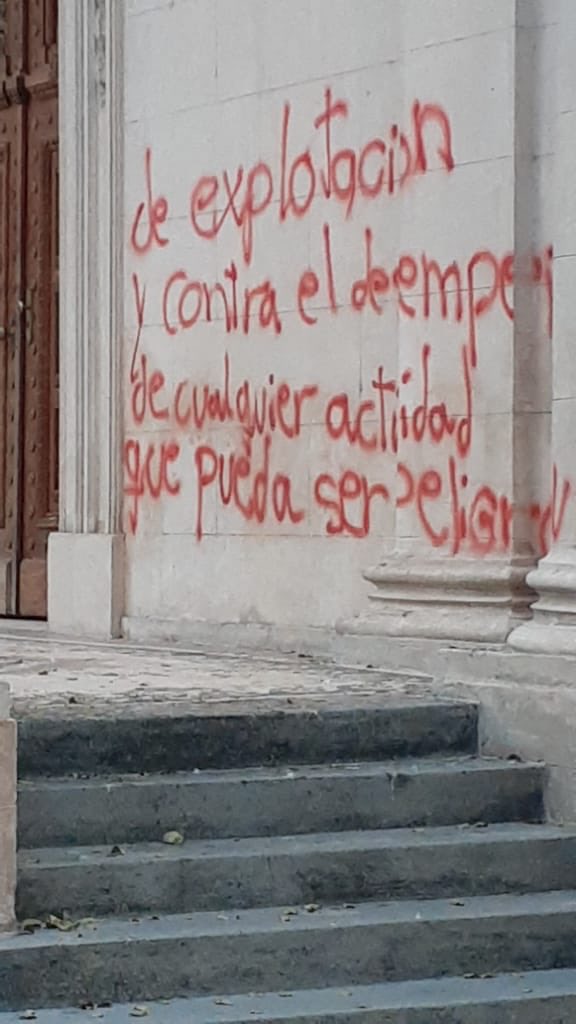 de explotacion
y contra el deempe
de cualquier actiidad
que pueda ser peligr